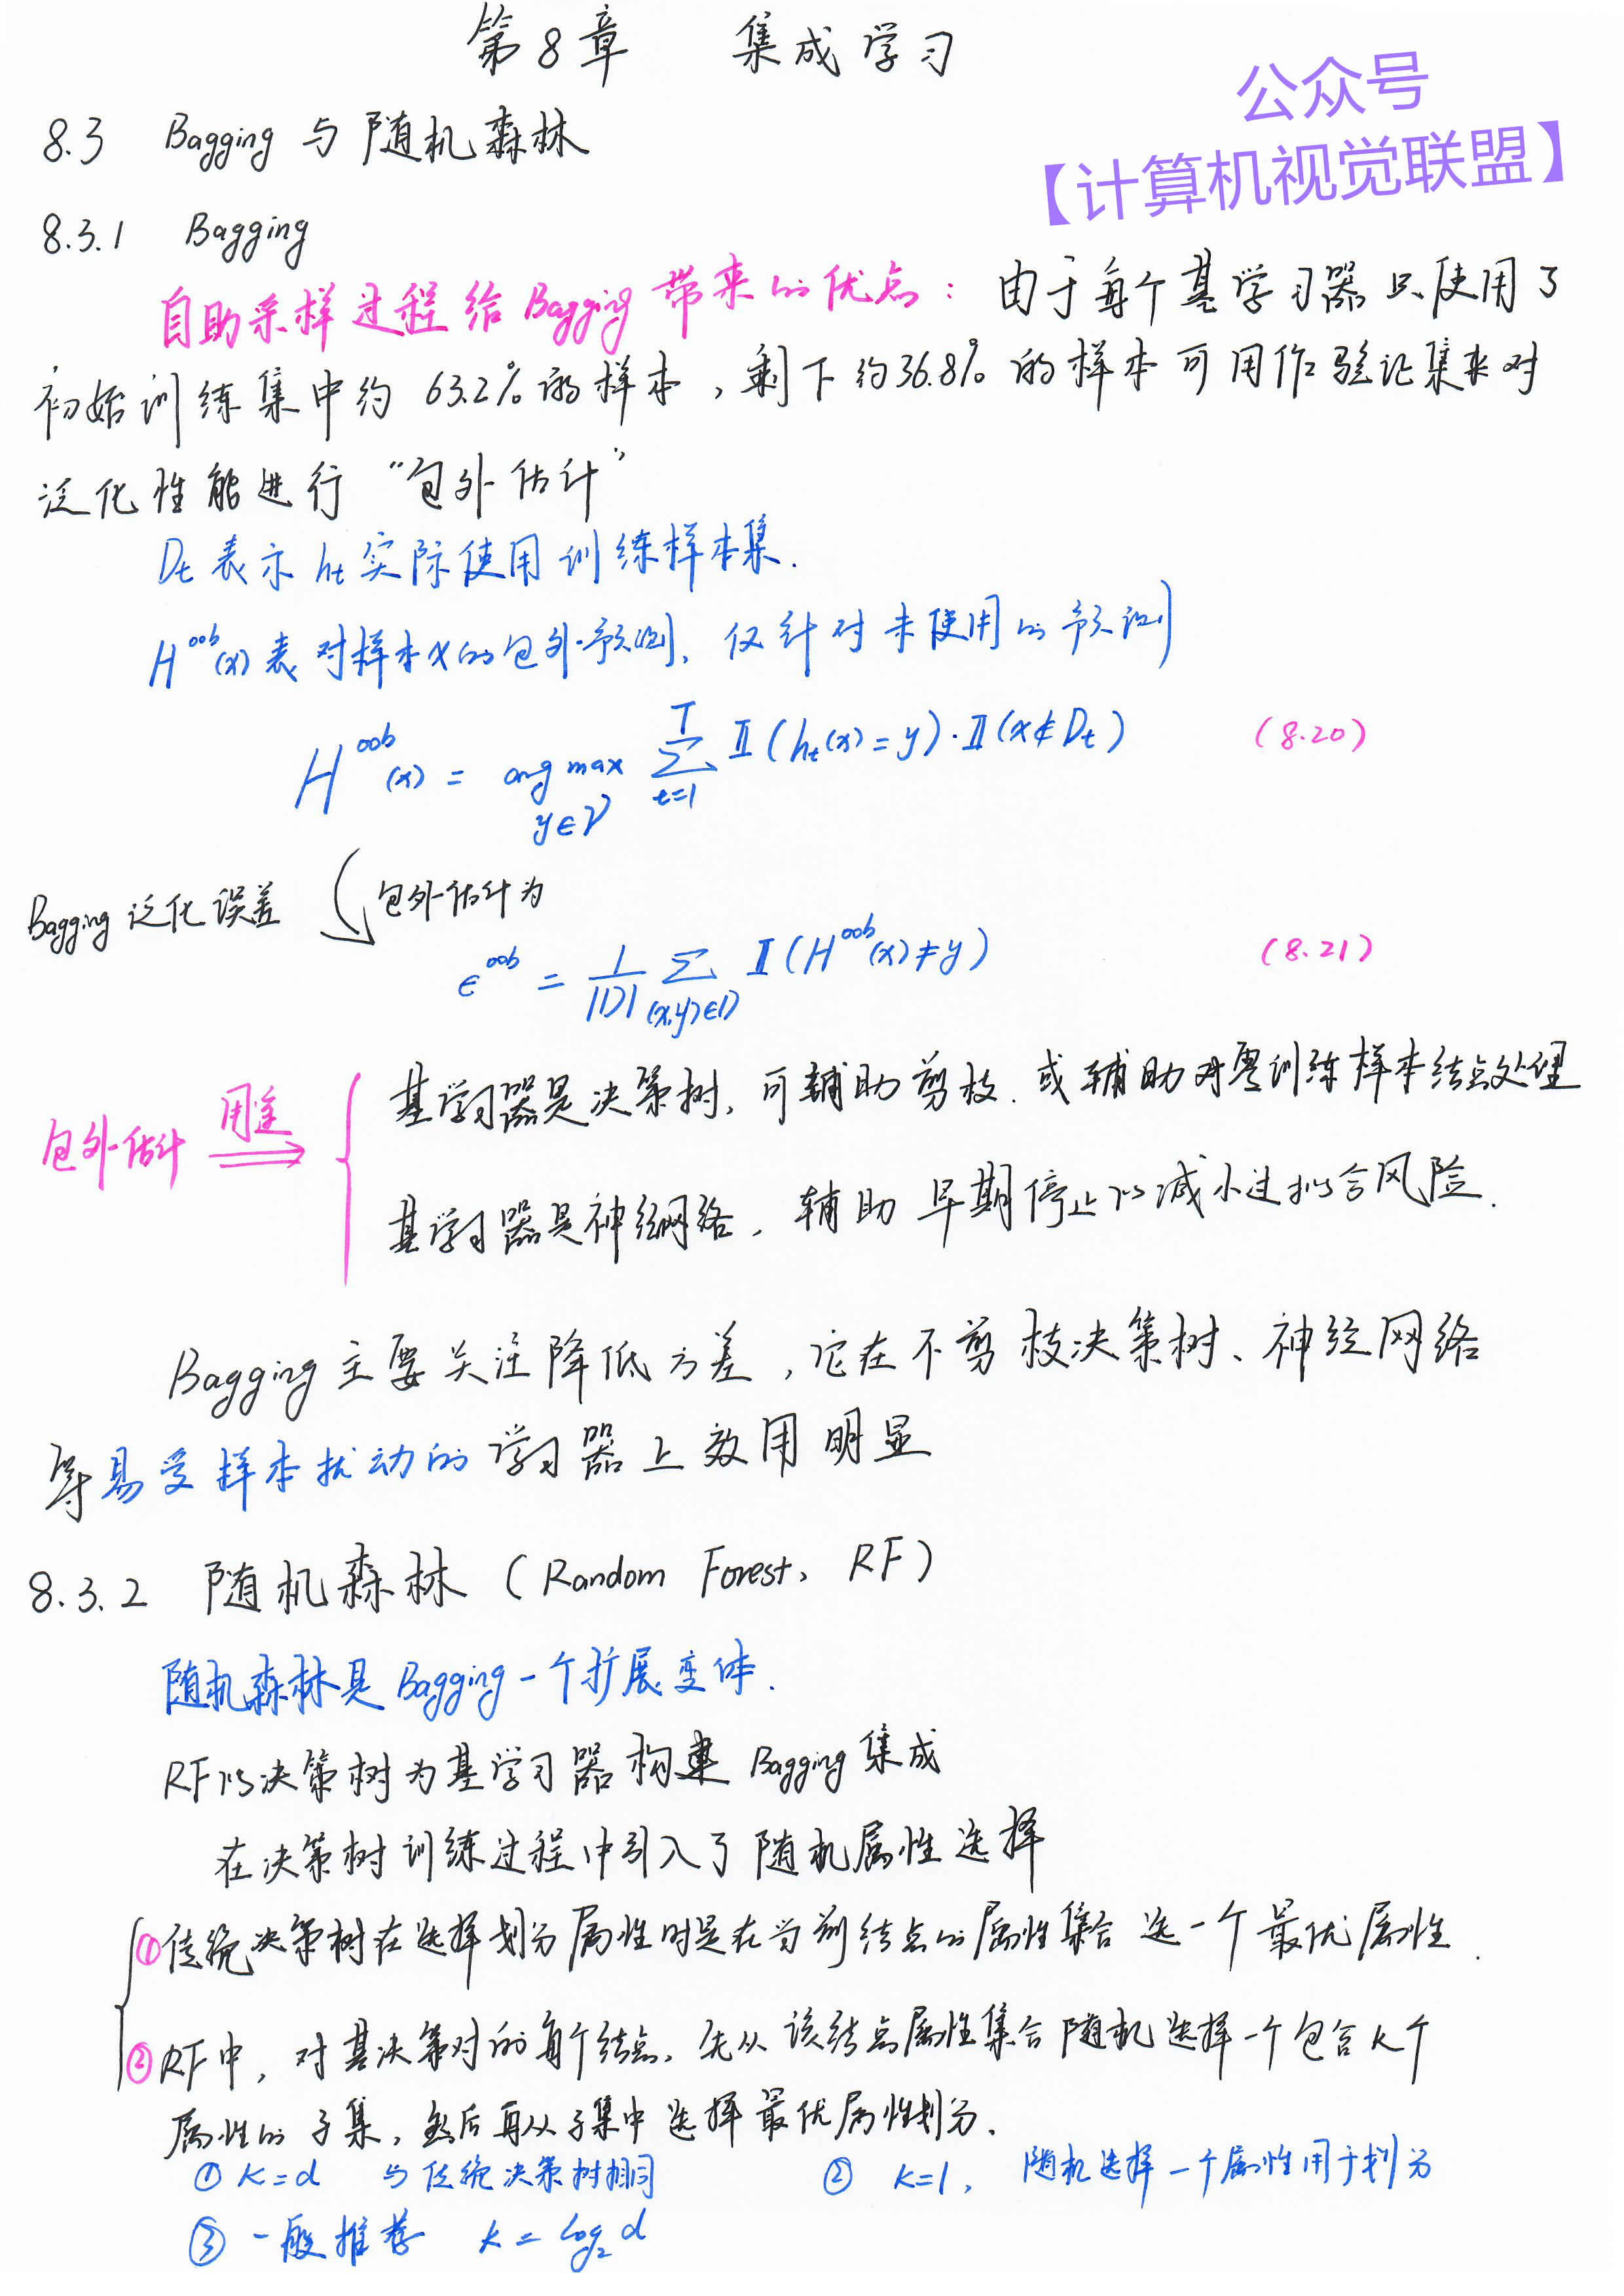 第8章 集成学习
公众号
【计算机视觉联盟】
8.3 Bagging 与随机森林
8.3.1 Bagging
自助采样过程给Bagging带来的优点：由于每个基学习器只使用了
初始训练集中约63.2%的样本，剩下约36.8%的样本可用作验证集来对
泛化性能进行“包外估计”
Dt 表示 ht 实际使用训练样本集.
H^oob(x) 表对样本x的包外预测，仅针对未使用的预测
H^oob(x) = arg max_{y∈𝒴} Σ_{t=1}^{T} 𝕀(ht(x)=y)·𝕀(x∉Dt) (8.20)
Bagging泛化误差 包外估计为
ϵ^oob = 1/|D| Σ_{(x,y)∈D} 𝕀(H^oob(x)≠y) (8.21)
包外估计 用途 ⇒
基学习器是决策树，可辅助剪枝.或辅助对零训练样本结点处理
基学习器是神经网络，辅助早期停止以减小过拟合风险.
Bagging主要关注降低方差，它在不剪枝决策树、神经网络
等易受样本扰动的学习器上效用明显
8.3.2 随机森林（Random Forest，RF）
随机森林是Bagging一个扩展变体.
RF以决策树为基学习器构建Bagging集成
在决策树训练过程中引入了随机属性选择
①传统决策树在选择划分属性时是在当前结点的属性集合选一个最优属性.
②RF中，对基决策对的每个结点，先从该结点属性集合随机选择一个包含k个
属性的子集，然后再从子集中选择最优属性划分.
① k=d 与传统决策树相同 ② k=1，随机选择一个属性用于划分
③ 一般推荐 k=log₂d